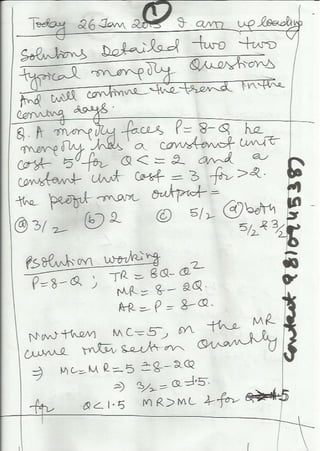 ①
Today 26 Jan 2013 I am uploading
Solutions Detailed two two
typical monopoly Questions
And will continue the trend in the
coming days.
Q. A monopoly faces P = 8-Q he
monopoly has a constant unit
cost 5 for Q<=2 and a
constant unit cost = 3 for >2.
the profit max output =
ⓐ 3/2 ⓑ 2 ⓒ 5/2 ⓓ both
5/2 & 3/2
Solution working
P=8-Q ; TR = 8Q-Q²
MR = 8-2Q.
AR = P = 8-Q.
Now then MC=5, on the MR
curve intersection Quantity
⇒ MC=MR=5=8-2Q
⇒ 3/2=Q=1.5.
for Q<1.5 MR>MC & for
contact 9810945387